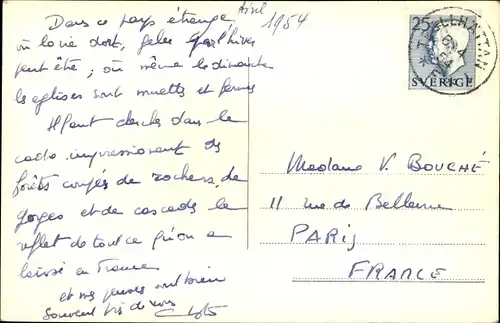 Avril
1954
Dans ce pays étrange
où la vie dort, gelée par l'hiver
peut être ; où même le dimanche
les églises sont muettes et fermées
Il faut chercher dans le
cadre impressionant des
forêts coupés de rochers, de
gorges et de cascades le
reflet de tout ce qu'on a
laissé en France
et nos pensées sont bien
souvent près de vous
25
SVERIGE
TROLLHÄTTAN
Madame V. BOUCHÉ
11 rue de Bellune
PARIS
FRANCE